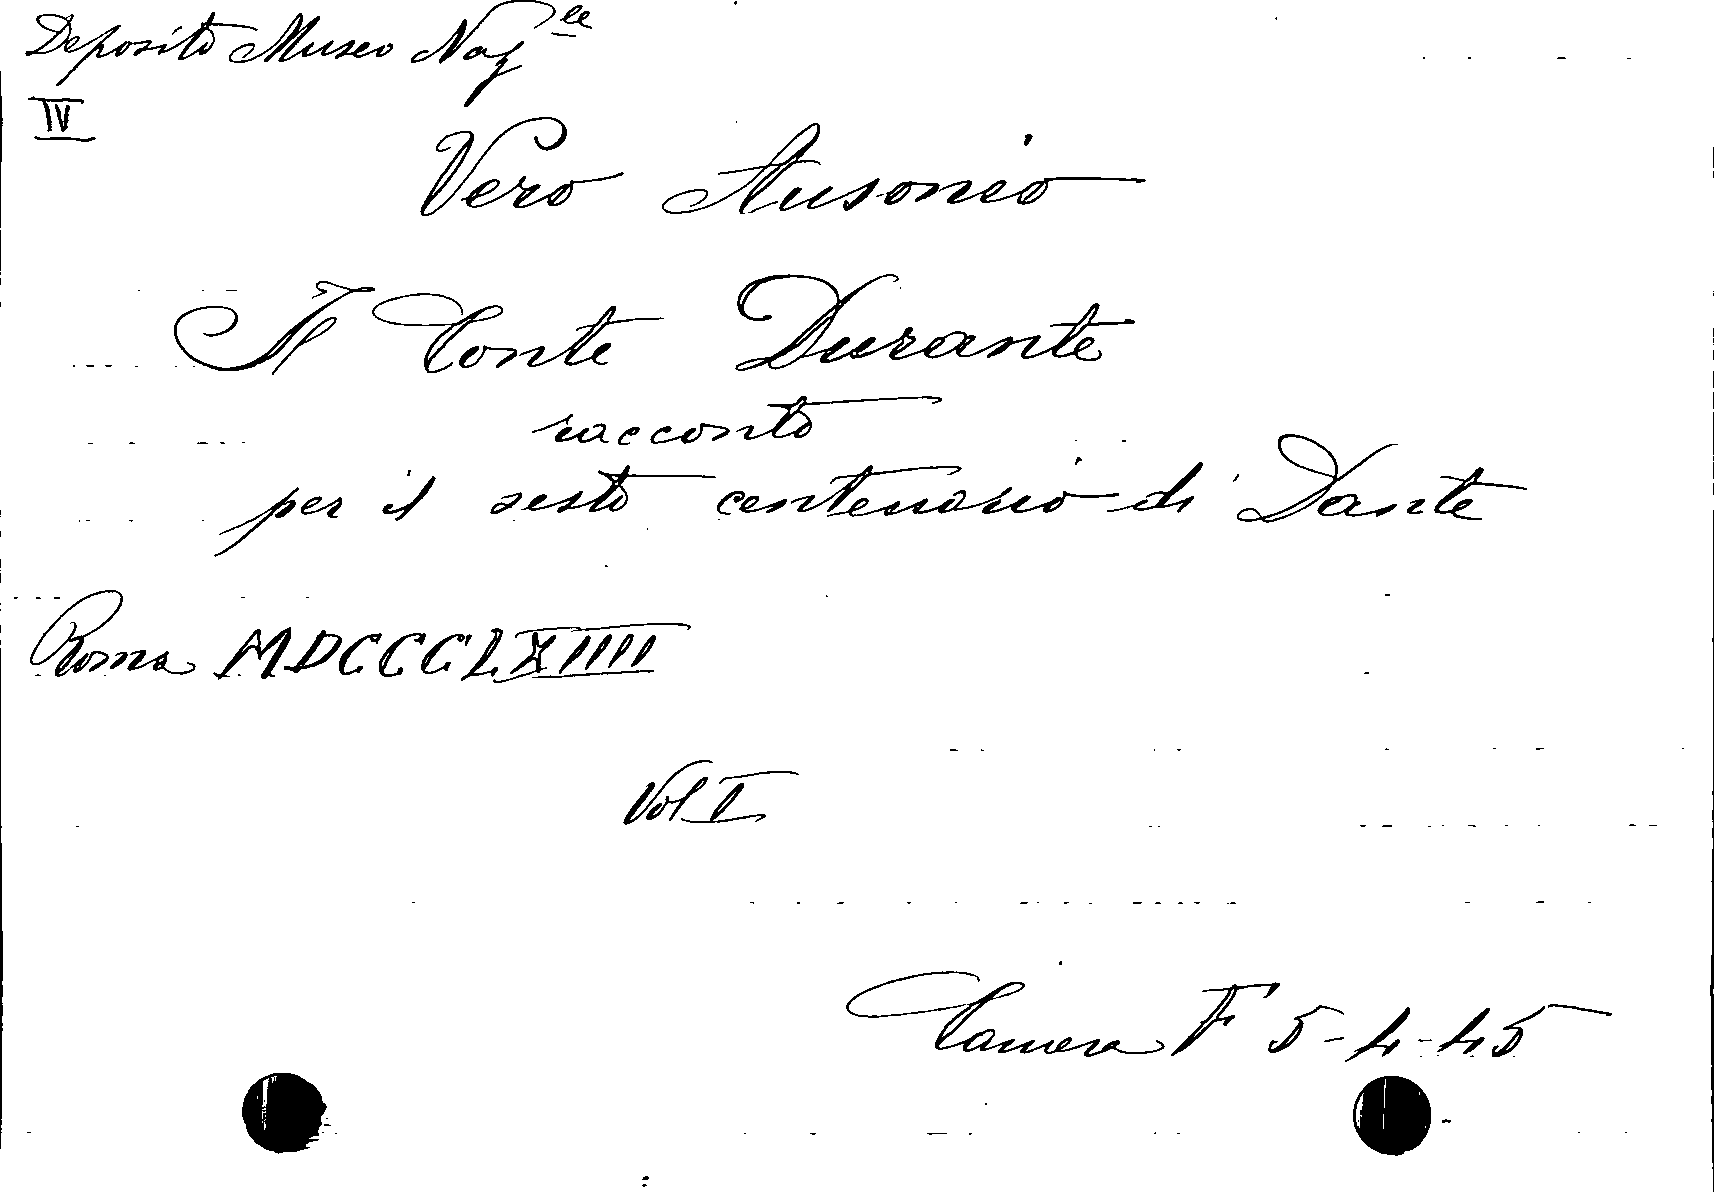 Deposito Museo Naz<sup>le</sup>
IV
Vero Ausonio
Il Conte Durante
racconto
per il sesto centenario di Dante
Roma MDCCCLXIIII
Vol I
Camera F 5-4-45